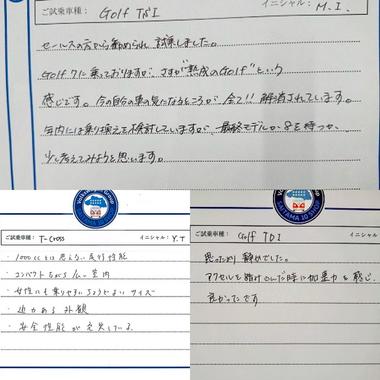 ご試乗車種： Golf TSI イニシャル： M.I.
セールスの方から勧められ、試乗しました。
Golf7に乗っておりますが、さすが"熟成のGolf"という
感じです。今の自分の車の気になるところが、全て!!解消されています。
年内には乗り換えを検討していますが、最終モデルか、8を待つか、
少し考えてみようと思います。
ご試乗車種： T-Cross イニシャル： Y.T
・1000ccとは思えない走行性能
・コンパクトながら広い室内
・女性にも乗りやすいちょうどよいサイズ
・迫力ある外観
・安全性能が充実している
SAITAMA 10 SHOP
ご試乗車種： Golf TDI イニシャル：
思ったより静かでした。
アクセルを踏み込んだ時に加速力を感じ、
良かったです